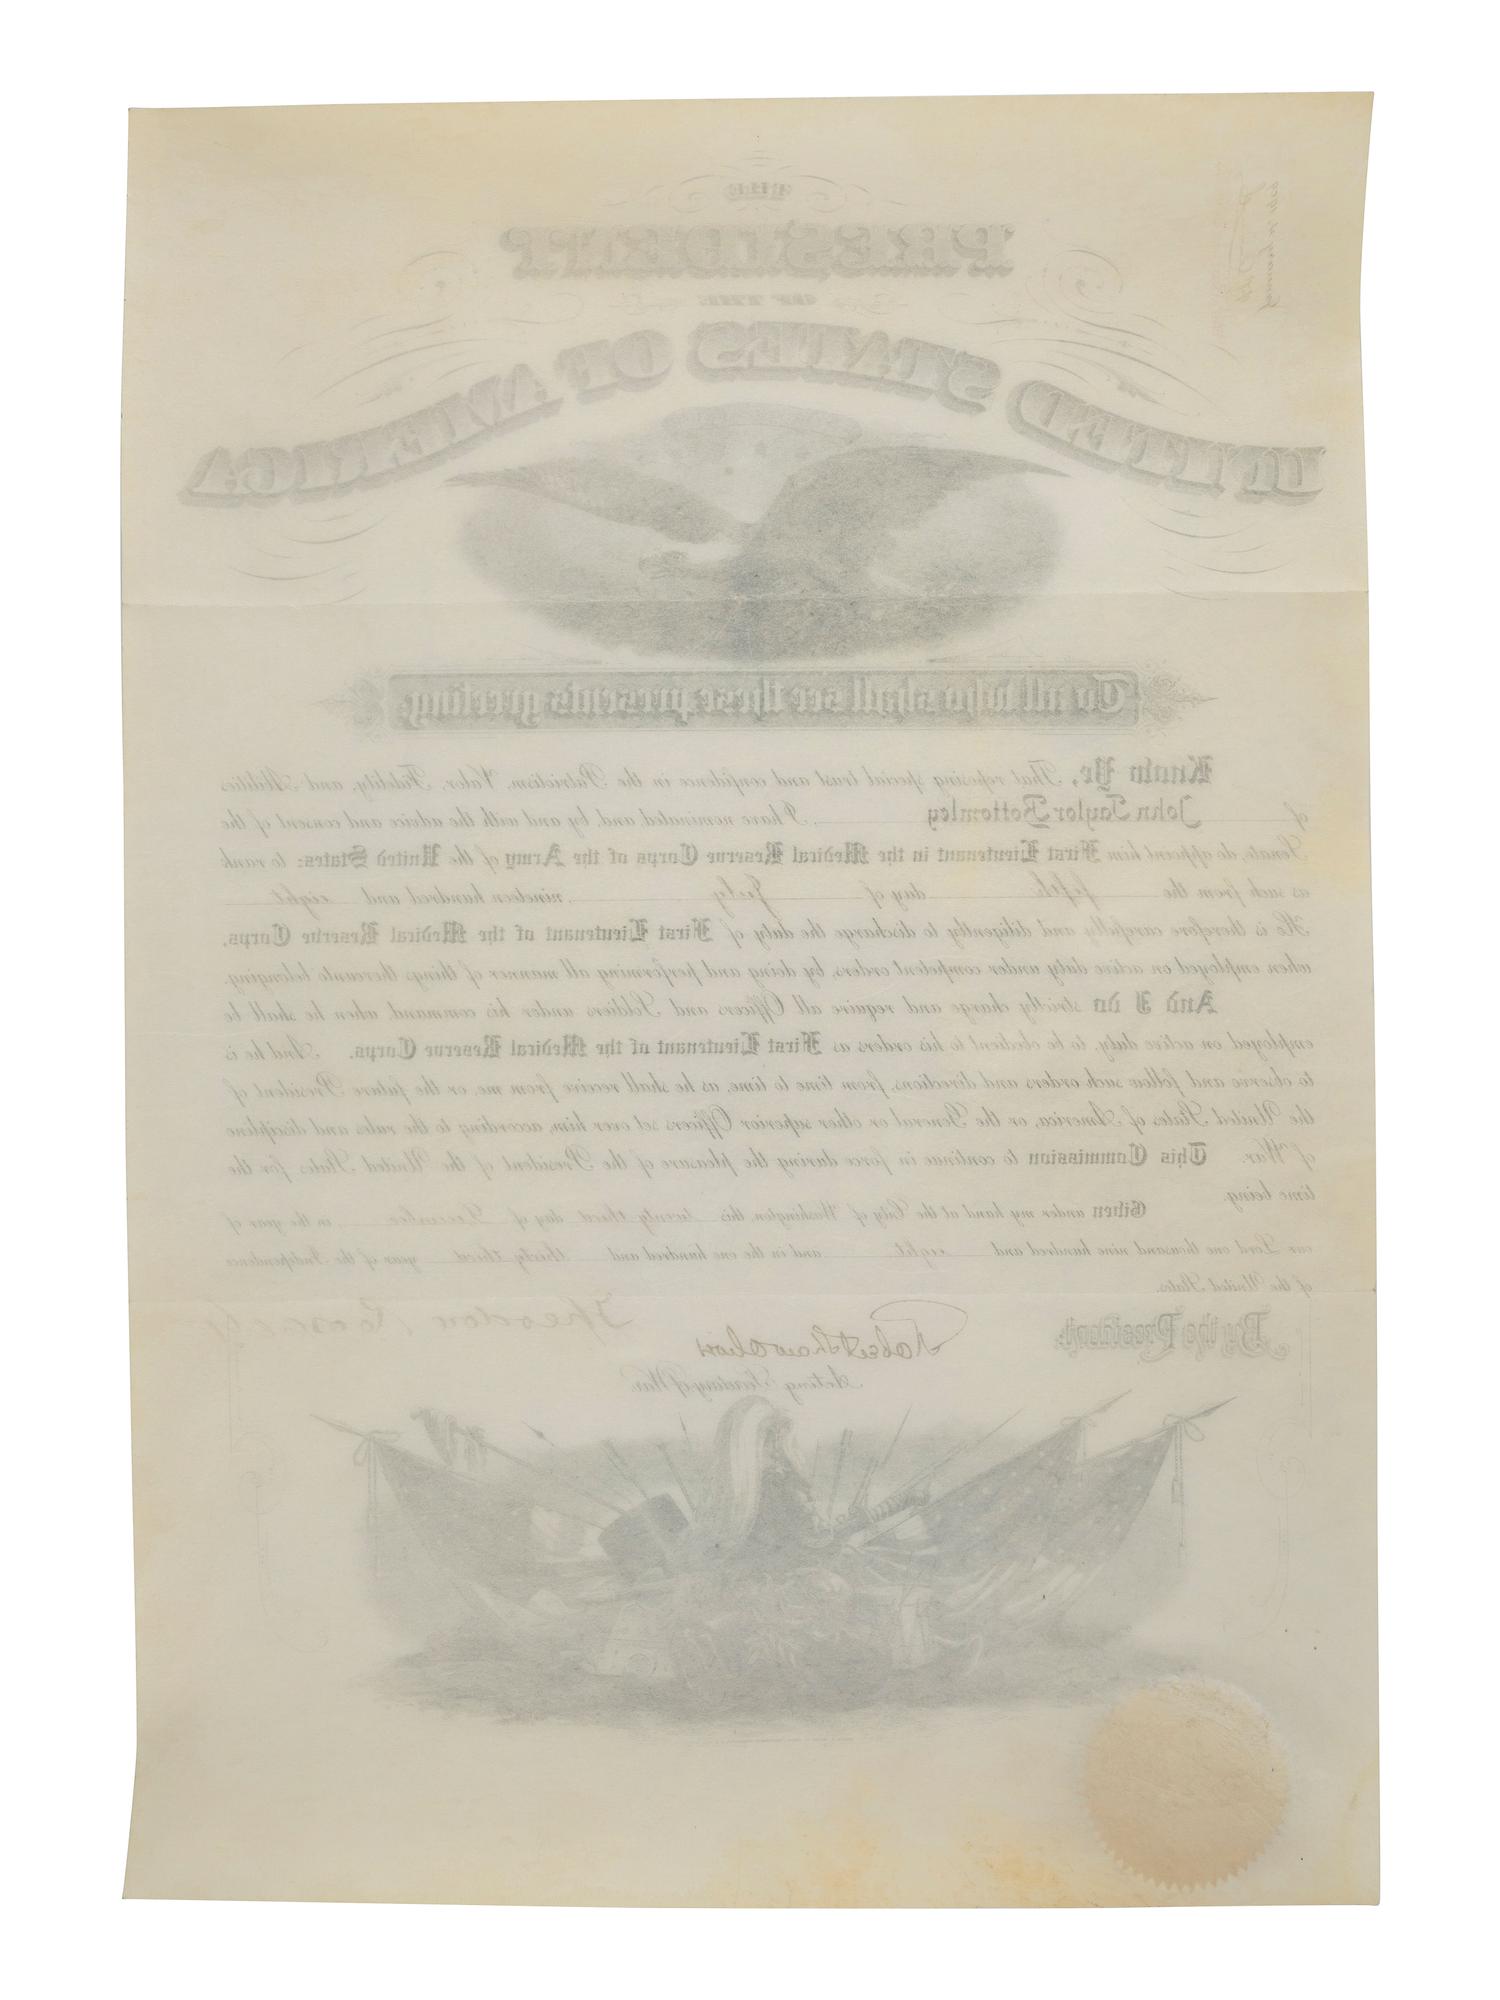 THE
PRESIDENT
OF THE
UNITED STATES OF AMERICA
To all who shall see these presents greeting:
Know Ye, That reposing special trust and confidence in the Patriotism, Valor, Fidelity, and Abilities
of John Taylor Bottomley, I have nominated, and, by and with the advice and consent of the
Senate, do appoint him First Lieutenant in the Medical Reserve Corps of the Army of the United States: to rank
as such from the fifth day of July, nineteen hundred and eight
He is therefore carefully and diligently to discharge the duty of First Lieutenant of the Medical Reserve Corps,
when employed on active duty under competent orders, by doing and performing all manner of things thereunto belonging.
And I do strictly charge and require all Officers and Soldiers under his command, when he shall be
employed on active duty, to be obedient to his orders as First Lieutenant of the Medical Reserve Corps. And he is
to observe and follow such orders and directions, from time to time, as he shall receive from me, or the future President of
the United States of America, or the General or other superior Officers set over him, according to the rules and discipline
of War. This Commission to continue in force during the pleasure of the President of the United States for the
time being.
Given under my hand at the City of Washington, this twenty third day of December, in the year of
our Lord one thousand nine hundred and eight and in the one hundred and thirty third year of the Independence
of the United States.
By the President:
Theodore Roosevelt
Robert Shaw Oliver
Acting Secretary of War.